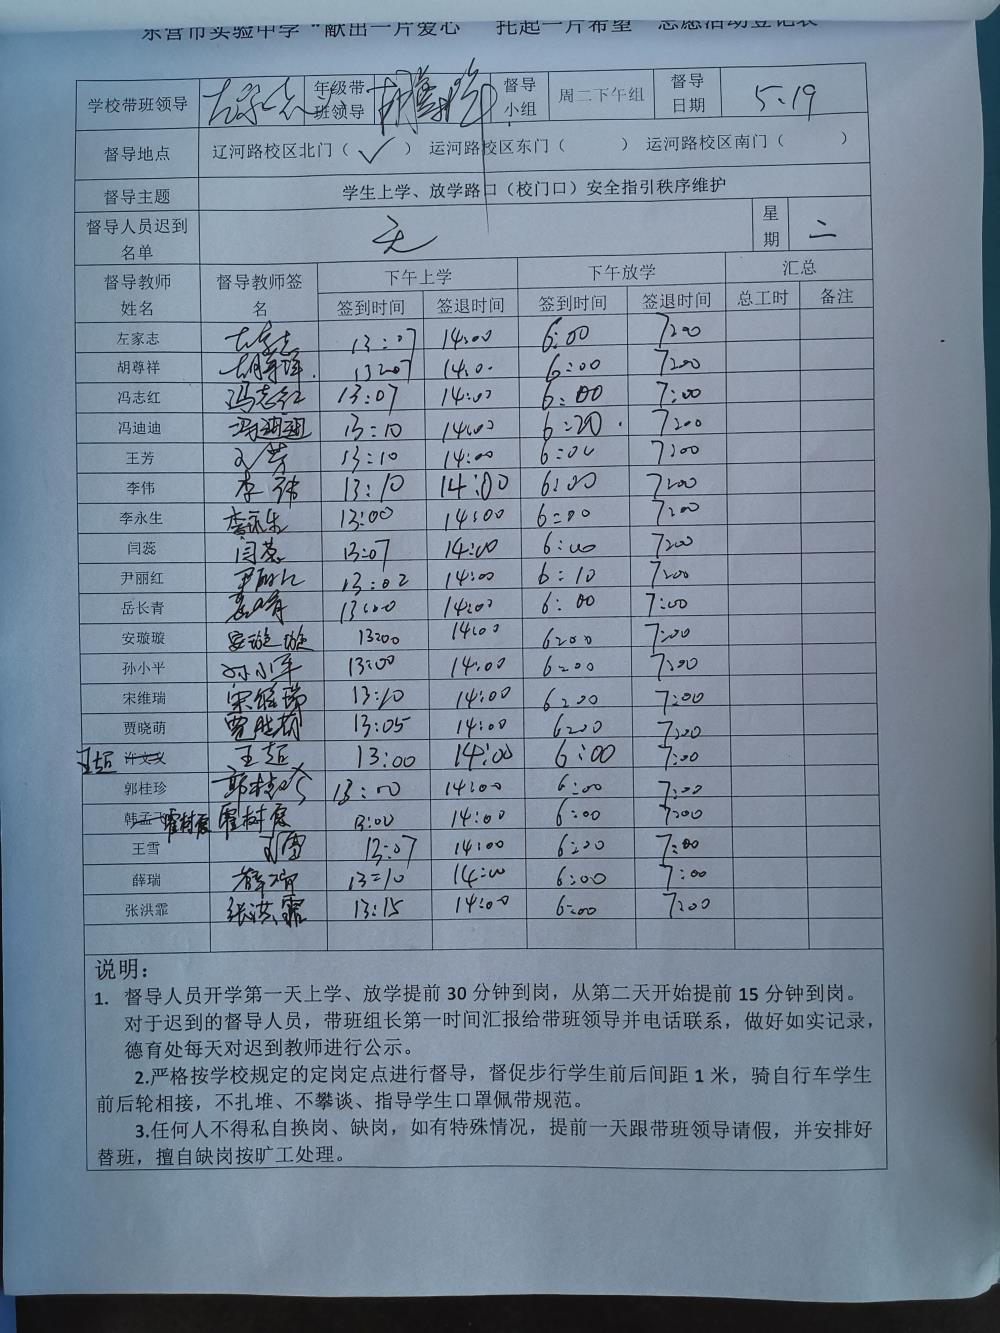 东营市实验中学“献出一片爱心 托起一片希望”志愿活动登记表
学校带班领导 左家志 年级带班领导 胡尊祥 督导小组 周二下午组 督导日期 5.19
督导地点 辽河路校区北门（ ✓ ） 运河路校区东门（ ） 运河路校区南门（ ）
督导主题 学生上学、放学路口（校门口）安全指引秩序维护
督导人员迟到名单 无 星期 二
督导教师姓名 督导教师签名 下午上学 下午放学 汇总
签到时间 签退时间 签到时间 签退时间 总工时 备注
左家志 左家志 13:07 14:00 6:00 7:00
胡尊祥 胡尊祥 13:07 14:00 6:00 7:00
冯志红 冯志红 13:07 14:00 6:00 7:00
冯迪迪 冯迪迪 13:10 14:00 6:20 7:00
王芳 王芳 13:10 14:00 6:00 7:00
李伟 李伟 13:10 14:00 6:00 7:00
李永生 李永生 13:00 14:00 6:00 7:00
闫蕊 闫蕊 13:07 14:00 6:00 7:00
尹丽红 尹丽红 13:02 14:00 6:10 7:00
岳长青 13:00 14:00 6:00 7:00
安璇璇 安璇璇 13:00 14:00 6:00 7:00
孙小平 孙小平 13:00 14:00 6:00 7:00
宋维瑞 宋维瑞 13:10 14:00 6:00 7:00
贾晓萌 贾晓萌 13:05 14:00 6:00 7:00
王超 许文义 王超 13:00 14:00 6:00 7:00
郭桂珍 郭桂珍 13:00 14:00 6:00 7:00
韩孟飞 霍树廷 霍树廷 13:00 14:00 6:00 7:00
王雪 王雪 13:07 14:00 6:00 7:00
薛瑞 薛瑞 13:10 14:00 6:00 7:00
张洪霏 张洪霏 13:15 14:00 6:00 7:00
说明：
1. 督导人员开学第一天上学、放学提前 30 分钟到岗，从第二天开始提前 15 分钟到岗。
对于迟到的督导人员，带班组长第一时间汇报给带班领导并电话联系，做好如实记录，
德育处每天对迟到教师进行公示。
2.严格按学校规定的定岗定点进行督导，督促步行学生前后间距 1 米，骑自行车学生
前后轮相接，不扎堆、不攀谈、指导学生口罩佩带规范。
3.任何人不得私自换岗、缺岗，如有特殊情况，提前一天跟带班领导请假，并安排好
替班，擅自缺岗按旷工处理。